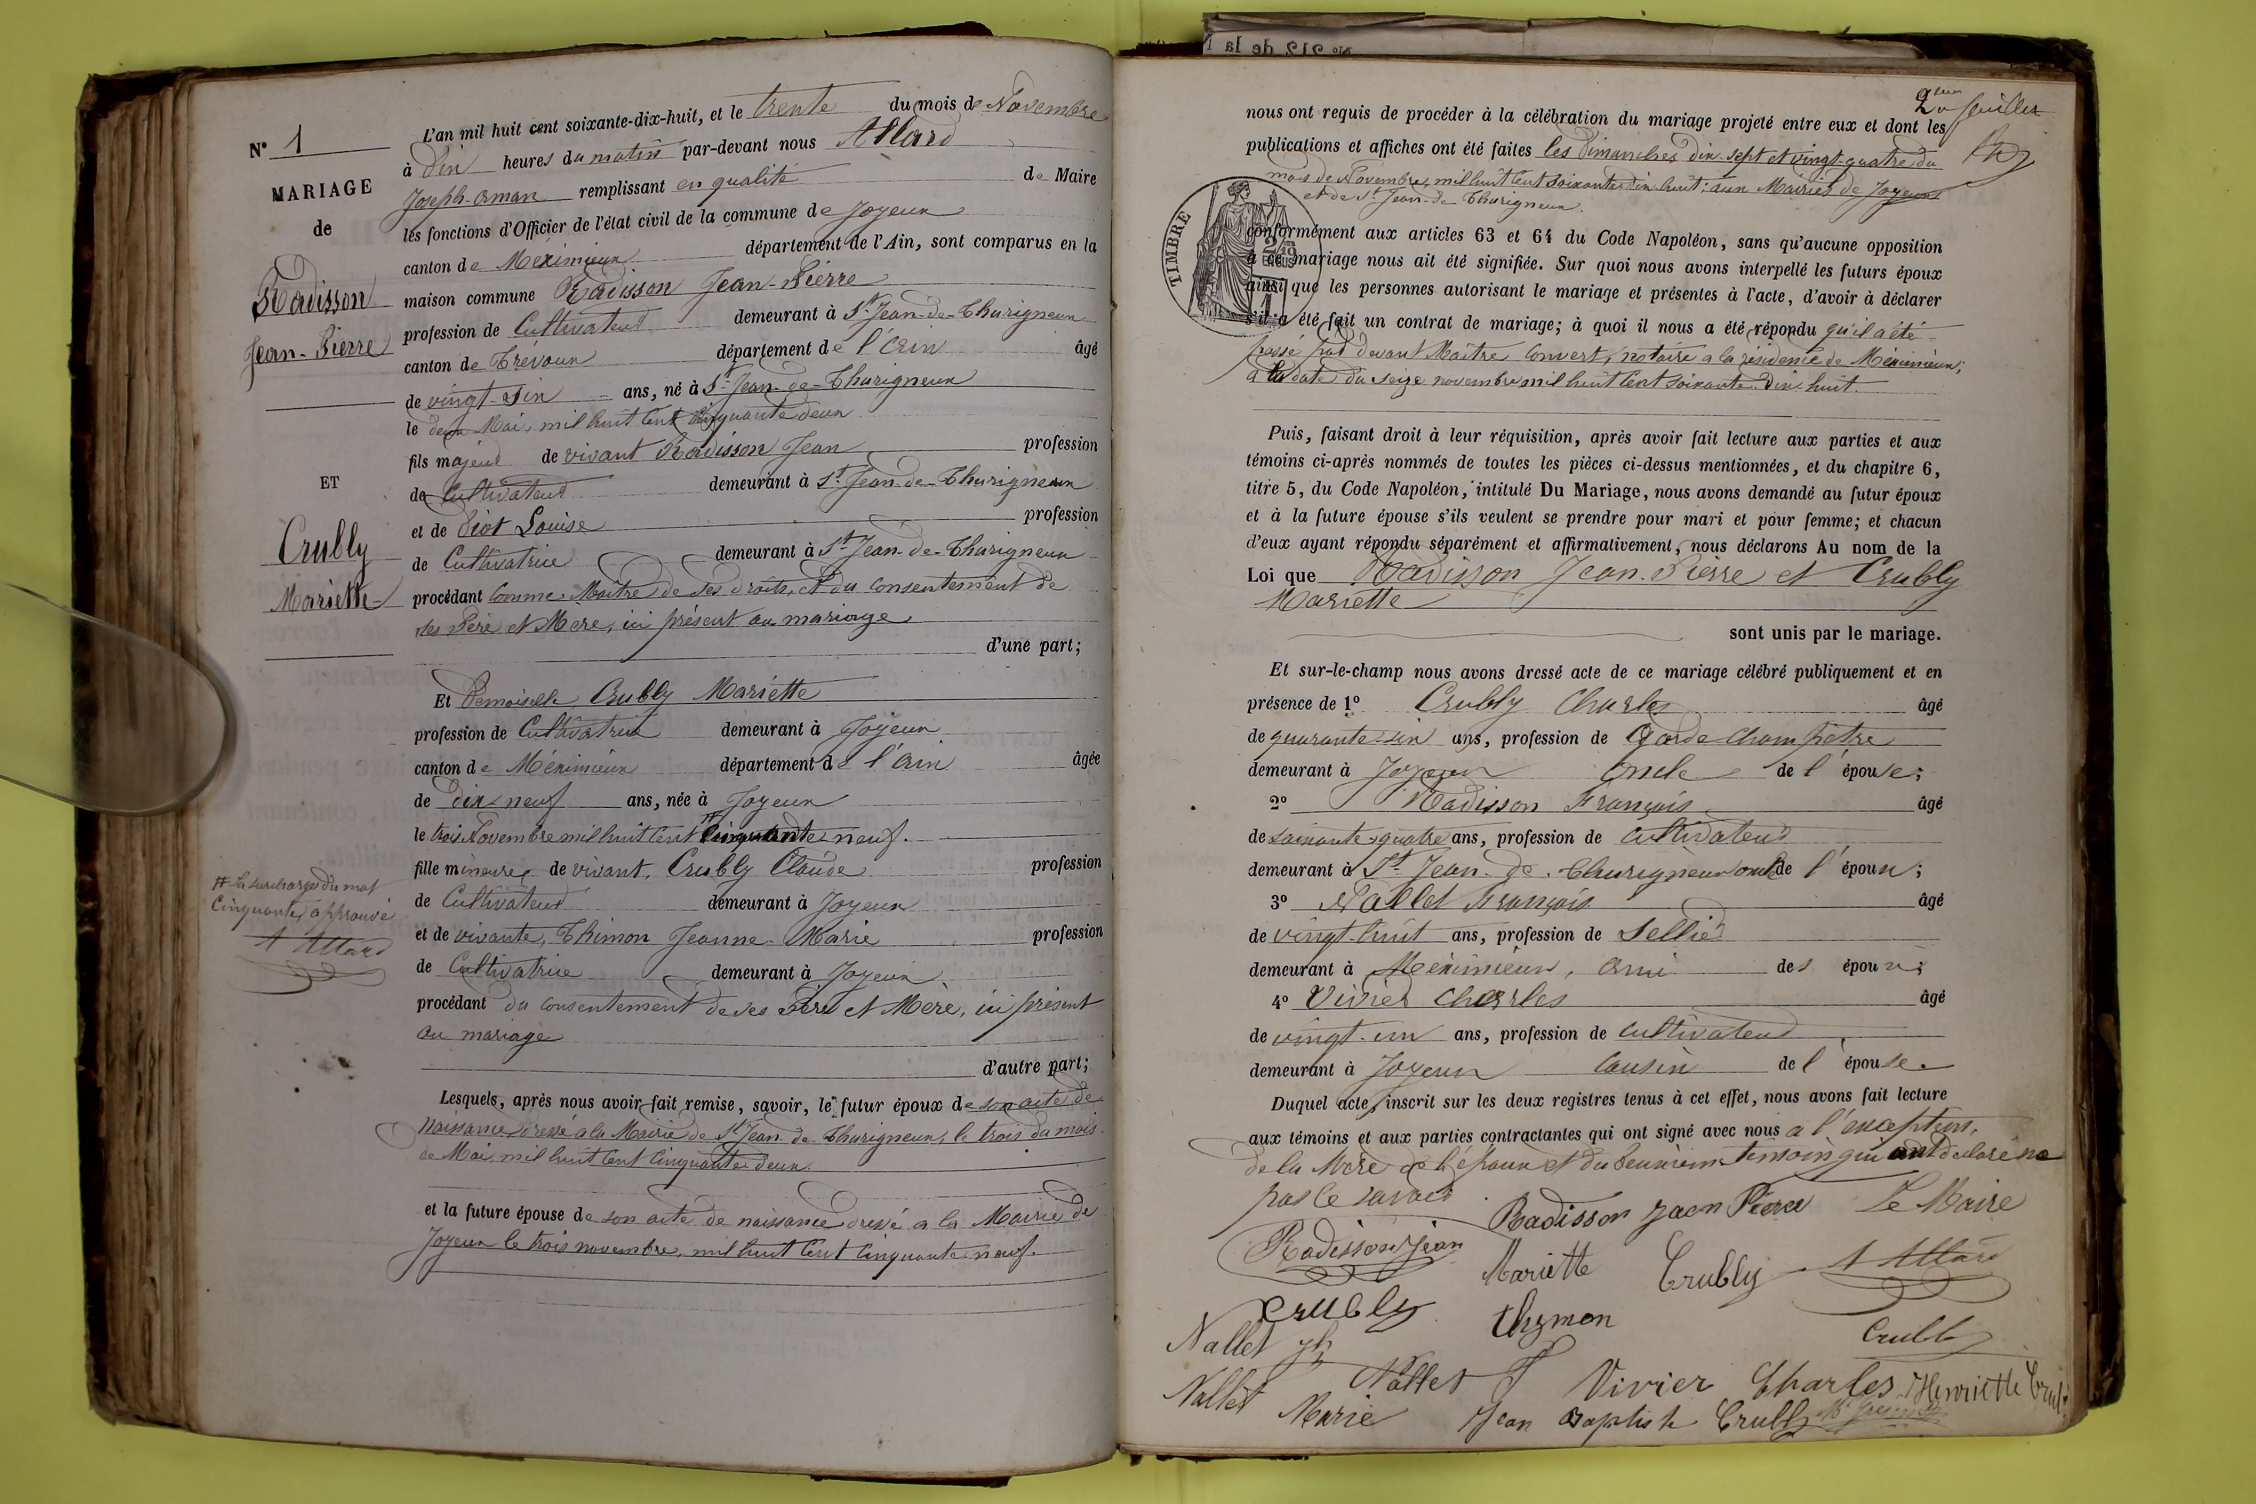 N° 1
MARIAGE
de
Radisson
Jean-Pierre
ET
Crubly
Mariette
# La surcharge du mot
Cinquante, approuvé
A Allard
L'an mil huit cent soixante-dix-huit, et le trente du mois de Novembre
à dix heures du matin par-devant nous Allard
Joseph-Aman remplissant en qualité de Maire
les fonctions d'Officier de l'état civil de la commune de Joyeux
canton de Méximieux département de l'Ain, sont comparus en la
maison commune Radisson Jean-Pierre
profession de Cultivateur demeurant à St Jean-de-Thurigneux
canton de Trévoux département de l'Ain âgé
de vingt-six ans, né à St Jean-de-Thurigneux
le deux Mai, mil huit cent cinquante deux
fils majeur de vivant Radisson Jean profession
de Cultivateur demeurant à St Jean-de-Thurigneux
et de Piot Louise profession
de Cultivatrice demeurant à St Jean-de-Thurigneux
procédant comme Maître de ses droits, et du consentement de
ses Père et Mère, ici présent au mariage
d'une part;
Et Demoiselle Crubly Mariette
profession de Cultivatrice demeurant à Joyeux
canton de Méximieux département de l'Ain âgée
de dix-neuf ans, née à Joyeux
le trois Novembre mil huit cent # Cinquante-neuf.
fille mineure, de vivant, Crubly Claude profession
de Cultivateur demeurant à Joyeux
et de vivante, Thimon Jeanne-Marie profession
de Cultivatrice demeurant à Joyeux
procédant du consentement de ses Père et Mère, ici présent
au mariage
d'autre part;
Lesquels, après nous avoir fait remise, savoir, le futur époux de son acte de
Naissance dressé à la Mairie de St Jean-de-Thurigneux, le trois du mois
de Mai, mil huit cent cinquante deux.
et la future épouse de son acte de naissance dressé a la Mairie de
Joyeux le trois novembre, mil huit cent cinquante-neuf.
N° 212 de la
2me feuillet
nous ont requis de procéder à la célébration du mariage projeté entre eux et dont les
publications et affiches ont été faites les Dimanches dix-sept et vingt-quatre du
mois de Novembre, mil huit cent soixante dix huit; aux Mairies de Joyeux
et de St Jean-de-Thurigneux.
TIMBRE
conformément aux articles 63 et 64 du Code Napoléon, sans qu'aucune opposition
à ce mariage nous ait été signifiée. Sur quoi nous avons interpellé les futurs époux
ainsi que les personnes autorisant le mariage et présentes à l'acte, d'avoir à déclarer
s'il a été fait un contrat de mariage; à quoi il nous a été répondu qu'il a été
passé par devant Maître Convert, notaire a la résidence de Méximieux,
a la date du seize novembre mil huit cent soixante-dix-huit.
Puis, faisant droit à leur réquisition, après avoir fait lecture aux parties et aux
témoins ci-après nommés de toutes les pièces ci-dessus mentionnées, et du chapitre 6,
titre 5, du Code Napoléon, intitulé Du Mariage, nous avons demandé au futur époux
et à la future épouse s'ils veulent se prendre pour mari et pour femme; et chacun
d'eux ayant répondu séparément et affirmativement, nous déclarons Au nom de la
Loi que Radisson Jean-Pierre et Crubly
Mariette
sont unis par le mariage.
Et sur-le-champ nous avons dressé acte de ce mariage célébré publiquement et en
présence de 1° Crubly Charles âgé
de quarante-six ans, profession de Garde-Champêtre
demeurant à Joyeux Oncle de l'épouse;
2° Radisson François âgé
de soixante-quatre ans, profession de Cultivateur
demeurant à St Jean-de-Thurigneux oncle de l'époux;
3° Nallet François âgé
de vingt-huit ans, profession de Sellier
demeurant à Méximieux, Ami des époux;
4° Vivier Charles âgé
de vingt-un ans, profession de cultivateur
demeurant à Joyeux Cousin de l'épouse.
Duquel acte, inscrit sur les deux registres tenus à cet effet, nous avons fait lecture
aux témoins et aux parties contractantes qui ont signé avec nous a l'exception,
de la Mère de l'époux et du deuxième témoin qui ont déclaré ne
pas le savoir.
Radisson Jaen Pierre Le Maire
Radisson Jean
Mariette Crubly A Allard
Crubly thymon Crubly
Nallet Jh
Nallet F Vivier Charles Henriette Crub
Nallet Marie Jean Baptiste Crubly